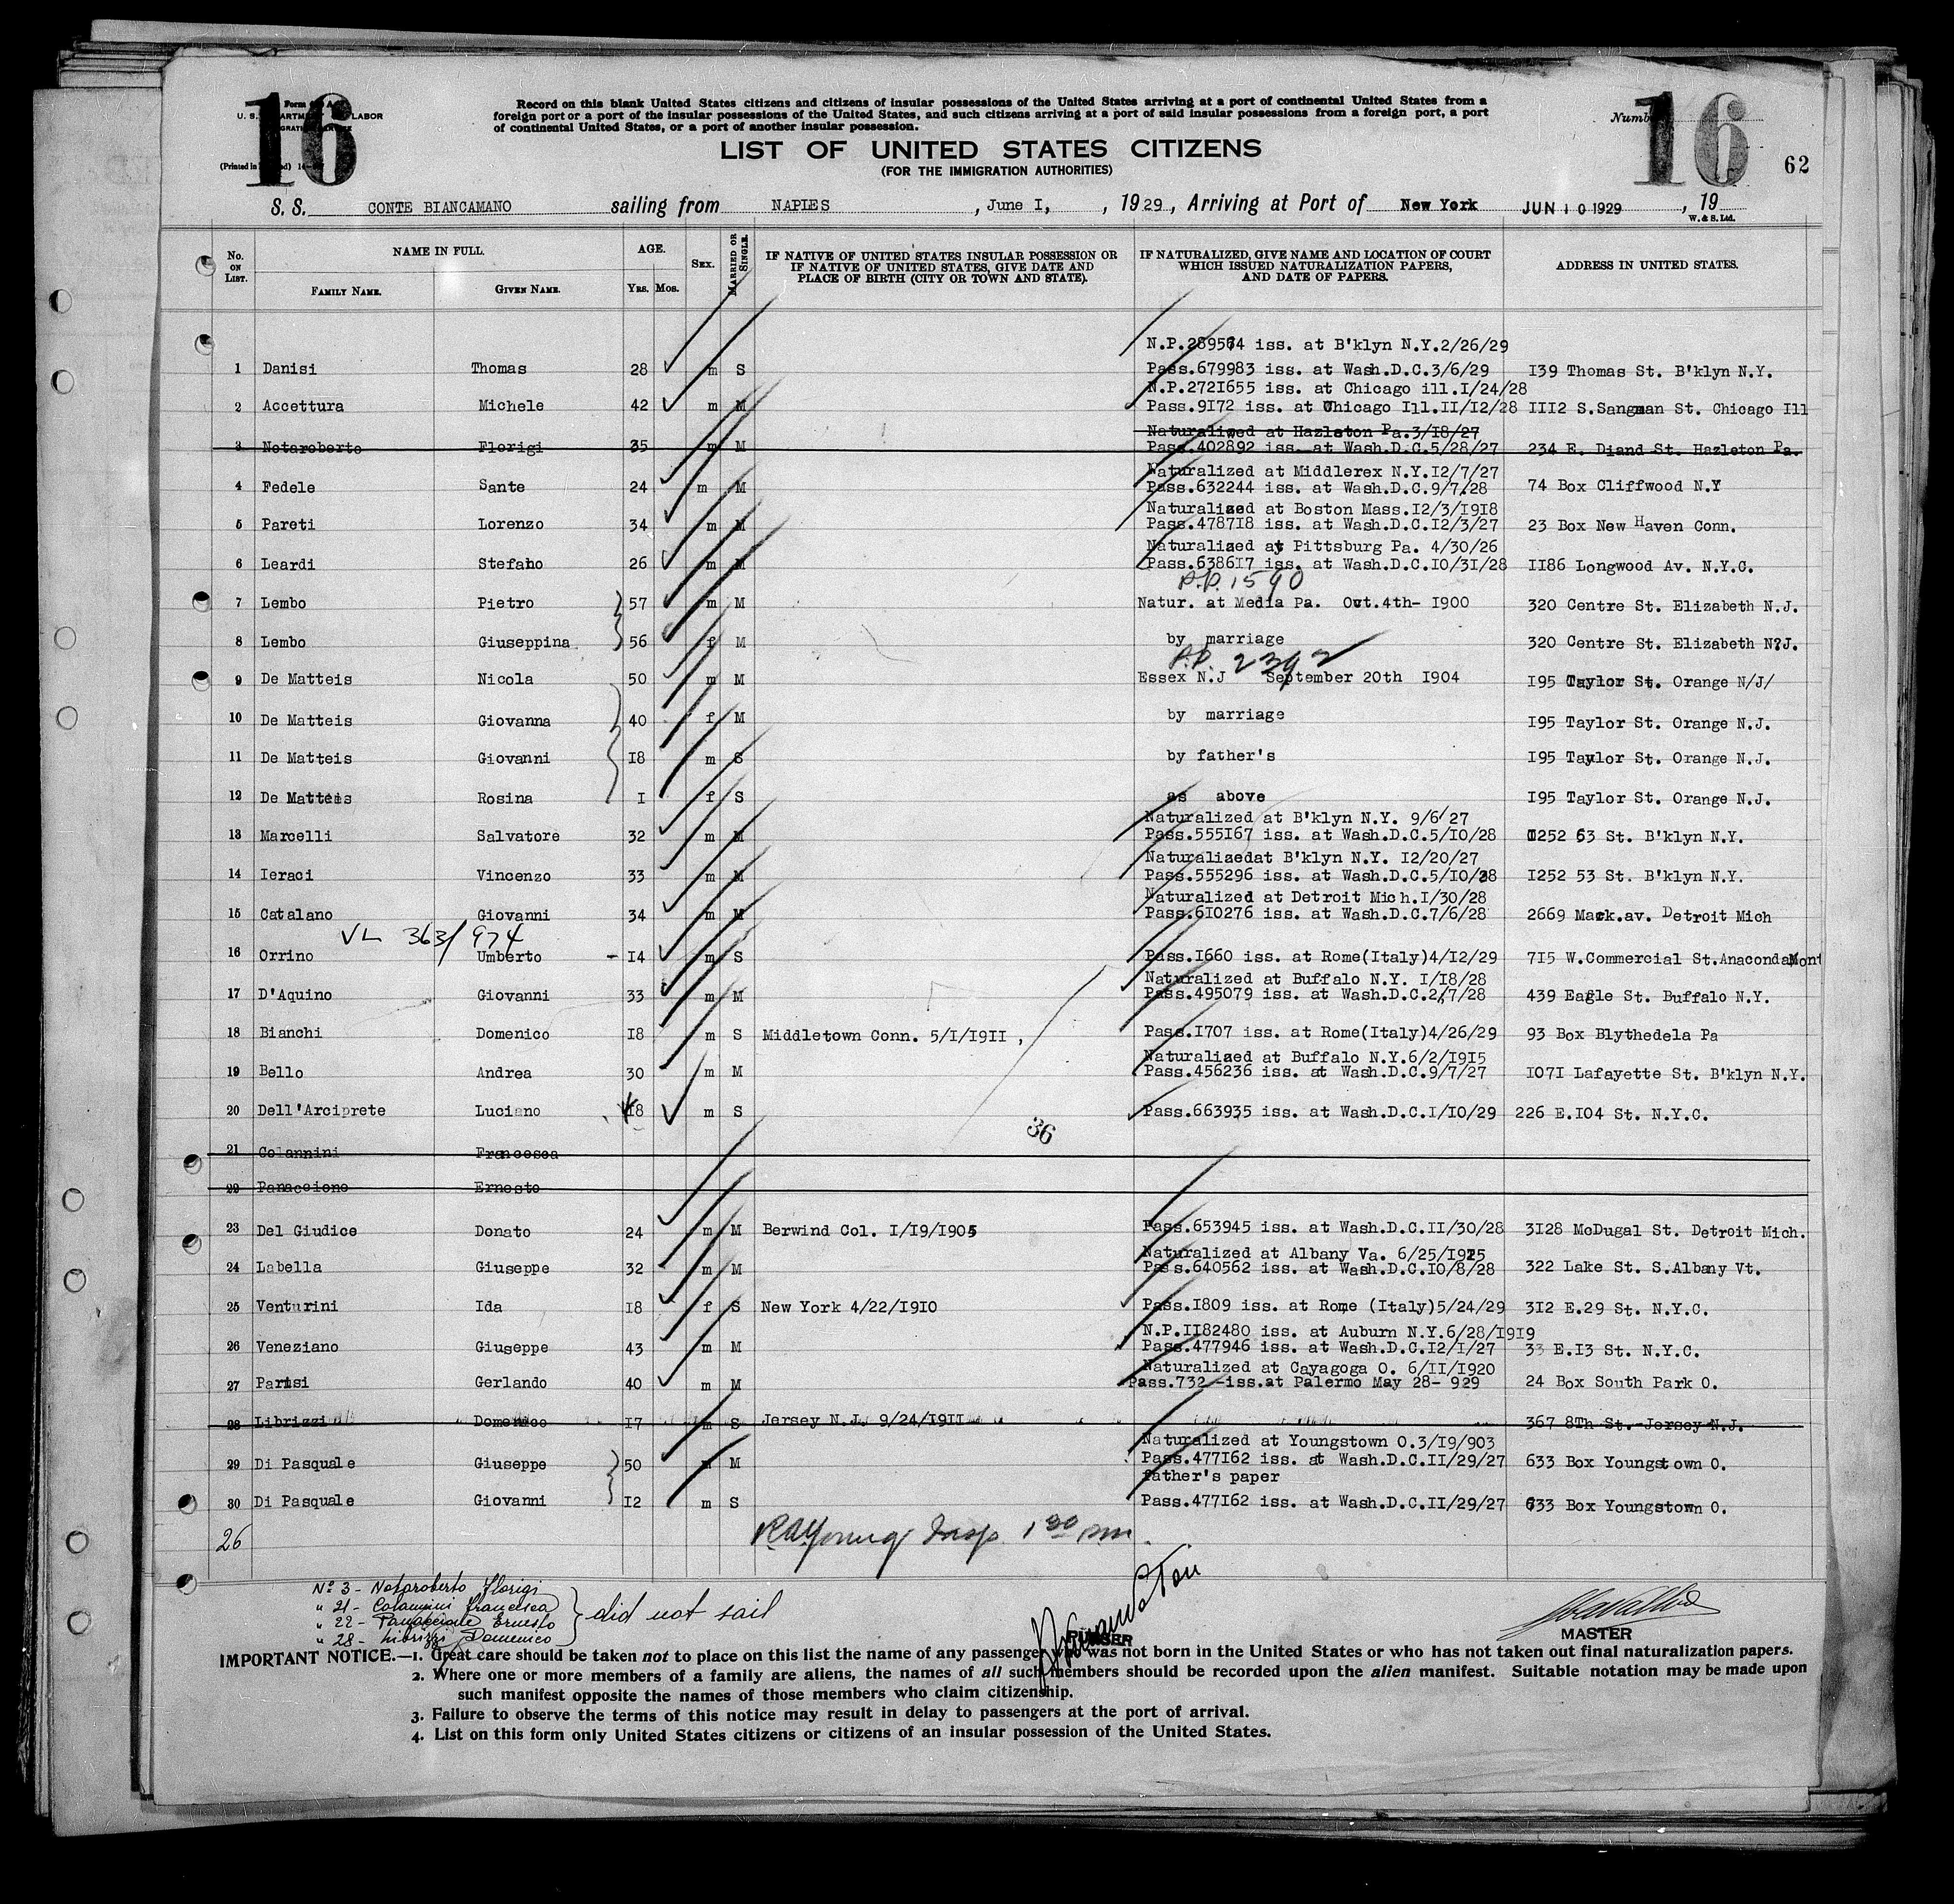 16
16
Form
U. S. DEPARTMENT LABOR
Number
(Printed in
62
Record on this blank United States citizens and citizens of insular possessions of the United States arriving at a port of continental United States from a
foreign port or a port of the insular possessions of the United States, and such citizens arriving at a port of said insular possessions from a foreign port, a port
of continental United States, or a port of another insular possession.
LIST OF UNITED STATES CITIZENS
(FOR THE IMMIGRATION AUTHORITIES)
S. S. CONTE BIANCAMANO sailing from NAPlES , June I, , 1929 , Arriving at Port of New York JUN 10 1929 , 19
W. & S. Ltd.
No. ON LIST. NAME IN FULL. AGE. SEX. MARRIED OR SINGLE. IF NATIVE OF UNITED STATES INSULAR POSSESSION OR IF NATIVE OF UNITED STATES, GIVE DATE AND PLACE OF BIRTH (CITY OR TOWN AND STATE). IF NATURALIZED, GIVE NAME AND LOCATION OF COURT WHICH ISSUED NATURALIZATION PAPERS, AND DATE OF PAPERS. ADDRESS IN UNITED STATES.
FAMILY NAME. GIVEN NAME. YRS. MOS.
N.P. iss. at B'klyn N.Y.2/26/29
1 Danisi Thomas 28 m S Pass.679983 iss. at Wash.D.C.3/6/29 I39 Thomas St. B'klyn N.Y.
N.P.272I655 iss. at Chicago ill.I/24/28
2 Accettura Michele 42 m M Pass.9I72 iss. at Chicago Ill.II/I2/28 III2 S.Sangman St. Chicago Ill
Naturalized at Hazleton Pa.3/I8/27
3 Notaroberto Florigi 35 m M Pass.402892 iss. at Wash.D.C.5/28/27 234 E. Diand St. Hazleton Pa.
Naturalized at Middlerex N.Y.I2/7/27
4 Fedele Sante 24 m M Pass.632244 iss. at Wash.D.C.9/7.28 74 Box Cliffwood N.Y
Naturalized at Boston Mass.I2/3/I9I8
5 Pareti Lorenzo 34 m M Pass.4787I8 iss. at Wash.D.C.I2/3/27 23 Box New Haven Conn.
Naturalized at Pittsburg Pa. 4/30/26
6 Leardi Stefano 26 m M Pass.6386I7 iss. at Wash.D.C.IO/3I/28 II86 Longwood Av. N.Y.C.
P.P. 1590
7 Lembo Pietro 57 m M Natur. at Media Pa. Oct.4th- I900 320 Centre St. Elizabeth N.J.
8 Lembo Giuseppina 56 f M by marriage 320 Centre St. Elizabeth N?J.
P.P. 2392
9 De Matteis Nicola 50 m M Essex N.J September 20th I904 I95 Taylor St. Orange N/J/
10 De Matteis Giovanna 40 f M by marriage I95 Taylor St. Orange N.J.
11 De Matteis Giovanni I8 m S by father's I95 Taylor St. Orange N.J.
12 De Matteis Rosina I f S as above I95 Taylor St. Orange N.J.
Naturalized at B'klyn N.Y. 9/6/27
13 Marcelli Salvatore 32 m M Pass.555I67 iss. at Wash.D.C.5/IO/28 I252 63 St. B'klyn N.Y.
Naturalizedat B'klyn N.Y. I2/20/27
14 Ieraci Vincenzo 33 m M Pass.555296 iss. at Wash.D.C.5/IO/28 I252 53 St. B'klyn N.Y.
Naturalized at Detroit Mich.I/30/28
15 Catalano Giovanni 34 m M Pass.6I0276 iss. at Wash.D.C.7/6/28 2669 Mack.av. Detroit Mich
VL 363/974
16 Orrino Umberto - I4 m S Pass.I660 iss. at Rome(Italy)4/I2/29 7I5 W.Commercial St.AnacondaMont
Naturalized at Buffalo N.Y. I/I8/28
17 D'Aquino Giovanni 33 m M Pass.495079 iss. at Wash.D.C.2/7/28 439 Eagle St. Buffalo N.Y.
18 Bianchi Domenico I8 m S Middletown Conn. 5/I/I9II , Pass.I707 iss. at Rome(Italy)4/26/29 93 Box Blythedela Pa
Naturalized at Buffalo N.Y.6/2/I9I5
19 Bello Andrea 30 m M Pass.456236 iss. at Wash.D.C.9/7/27 I07I Lafayette St. B'klyn N.Y.
20 Dell'Arciprete Luciano I8 m S Pass.663935 iss. at Wash.D.C.I/IO/29 226 E.I04 St. N.Y.C.
36
21 Colannini Francesca
22 Panaccione Ernesto
23 Del Giudice Donato 24 m M Berwind Col. I/I9/I905 Pass.653945 iss. at Wash.D.C.II/30/28 3I28 McDugal St. Detroit Mich.
Naturalized at Albany Va. 6/25/I925
24 Labella Giuseppe 32 m M Pass.640562 iss. at Wash.D.C.IO/8/28 322 Lake St. S.Albany Vt.
25 Venturini Ida I8 f S New York 4/22/I9I0 Pass.I809 iss. at Rome (Italy)5/24/29 3I2 E.29 St. N.Y.C.
N.P.II82480 iss. at Auburn N.Y.6/28/I9I9
26 Veneziano Giuseppe 43 m M Pass.477946 iss. at Wash.D.C.I2/I/27 33 E.I3 St. N.Y.C.
Naturalized at Cayagoga O. 6/II/I920
27 Parisi Gerlando 40 m M Pass.732 -iss.at Palermo May 28- 929 24 Box South Park O.
28 Librizzi Domenico I7 m S Jersey N.J. 9/24/I9II 367 8Th St. Jersey N.J.
Naturalized at Youngstown O.3/I9/903
29 Di Pasquale Giuseppe 50 m M Pass.477I62 iss. at Wash.D.C.II/29/27 633 Box Youngstown O.
father's paper
30 Di Pasquale Giovanni I2 m S Pass.477I62 iss. at Wash.D.C.II/29/27 633 Box Youngstown O.
26 Young Insp. 1 30 pm.
No 3 - Notaroberto Florigi
" 21 - Colannini Francesca
" 22 - Panaccione Ernesto
" 28 - Librizzi Domenico
did not sail
PURSER
MASTER
IMPORTANT NOTICE.—1. Great care should be taken not to place on this list the name of any passenger who was not born in the United States or who has not taken out final naturalization papers.
2. Where one or more members of a family are aliens, the names of all such members should be recorded upon the alien manifest. Suitable notation may be made upon
such manifest opposite the names of those members who claim citizenship.
3. Failure to observe the terms of this notice may result in delay to passengers at the port of arrival.
4. List on this form only United States citizens or citizens of an insular possession of the United States.